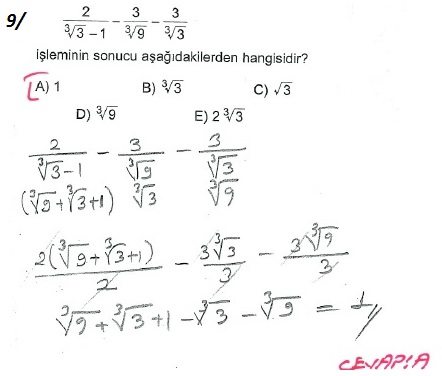 9/ 2/(∛3 − 1) − 3/∛9 − 3/∛3
işleminin sonucu aşağıdakilerden hangisidir?
A) 1 B) ∛3 C) √3
D) ∛9 E) 2 ∛3
2/(∛3−1) − 3/∛9 − 3/∛3
(∛9+∛3+1) ∛3 ∛9
2(∛9+∛3+1)/2 − 3∛3/3 − 3∛9/3
∛9+∛3+1 −∛3 −∛9 = 1//
CEVAP:A